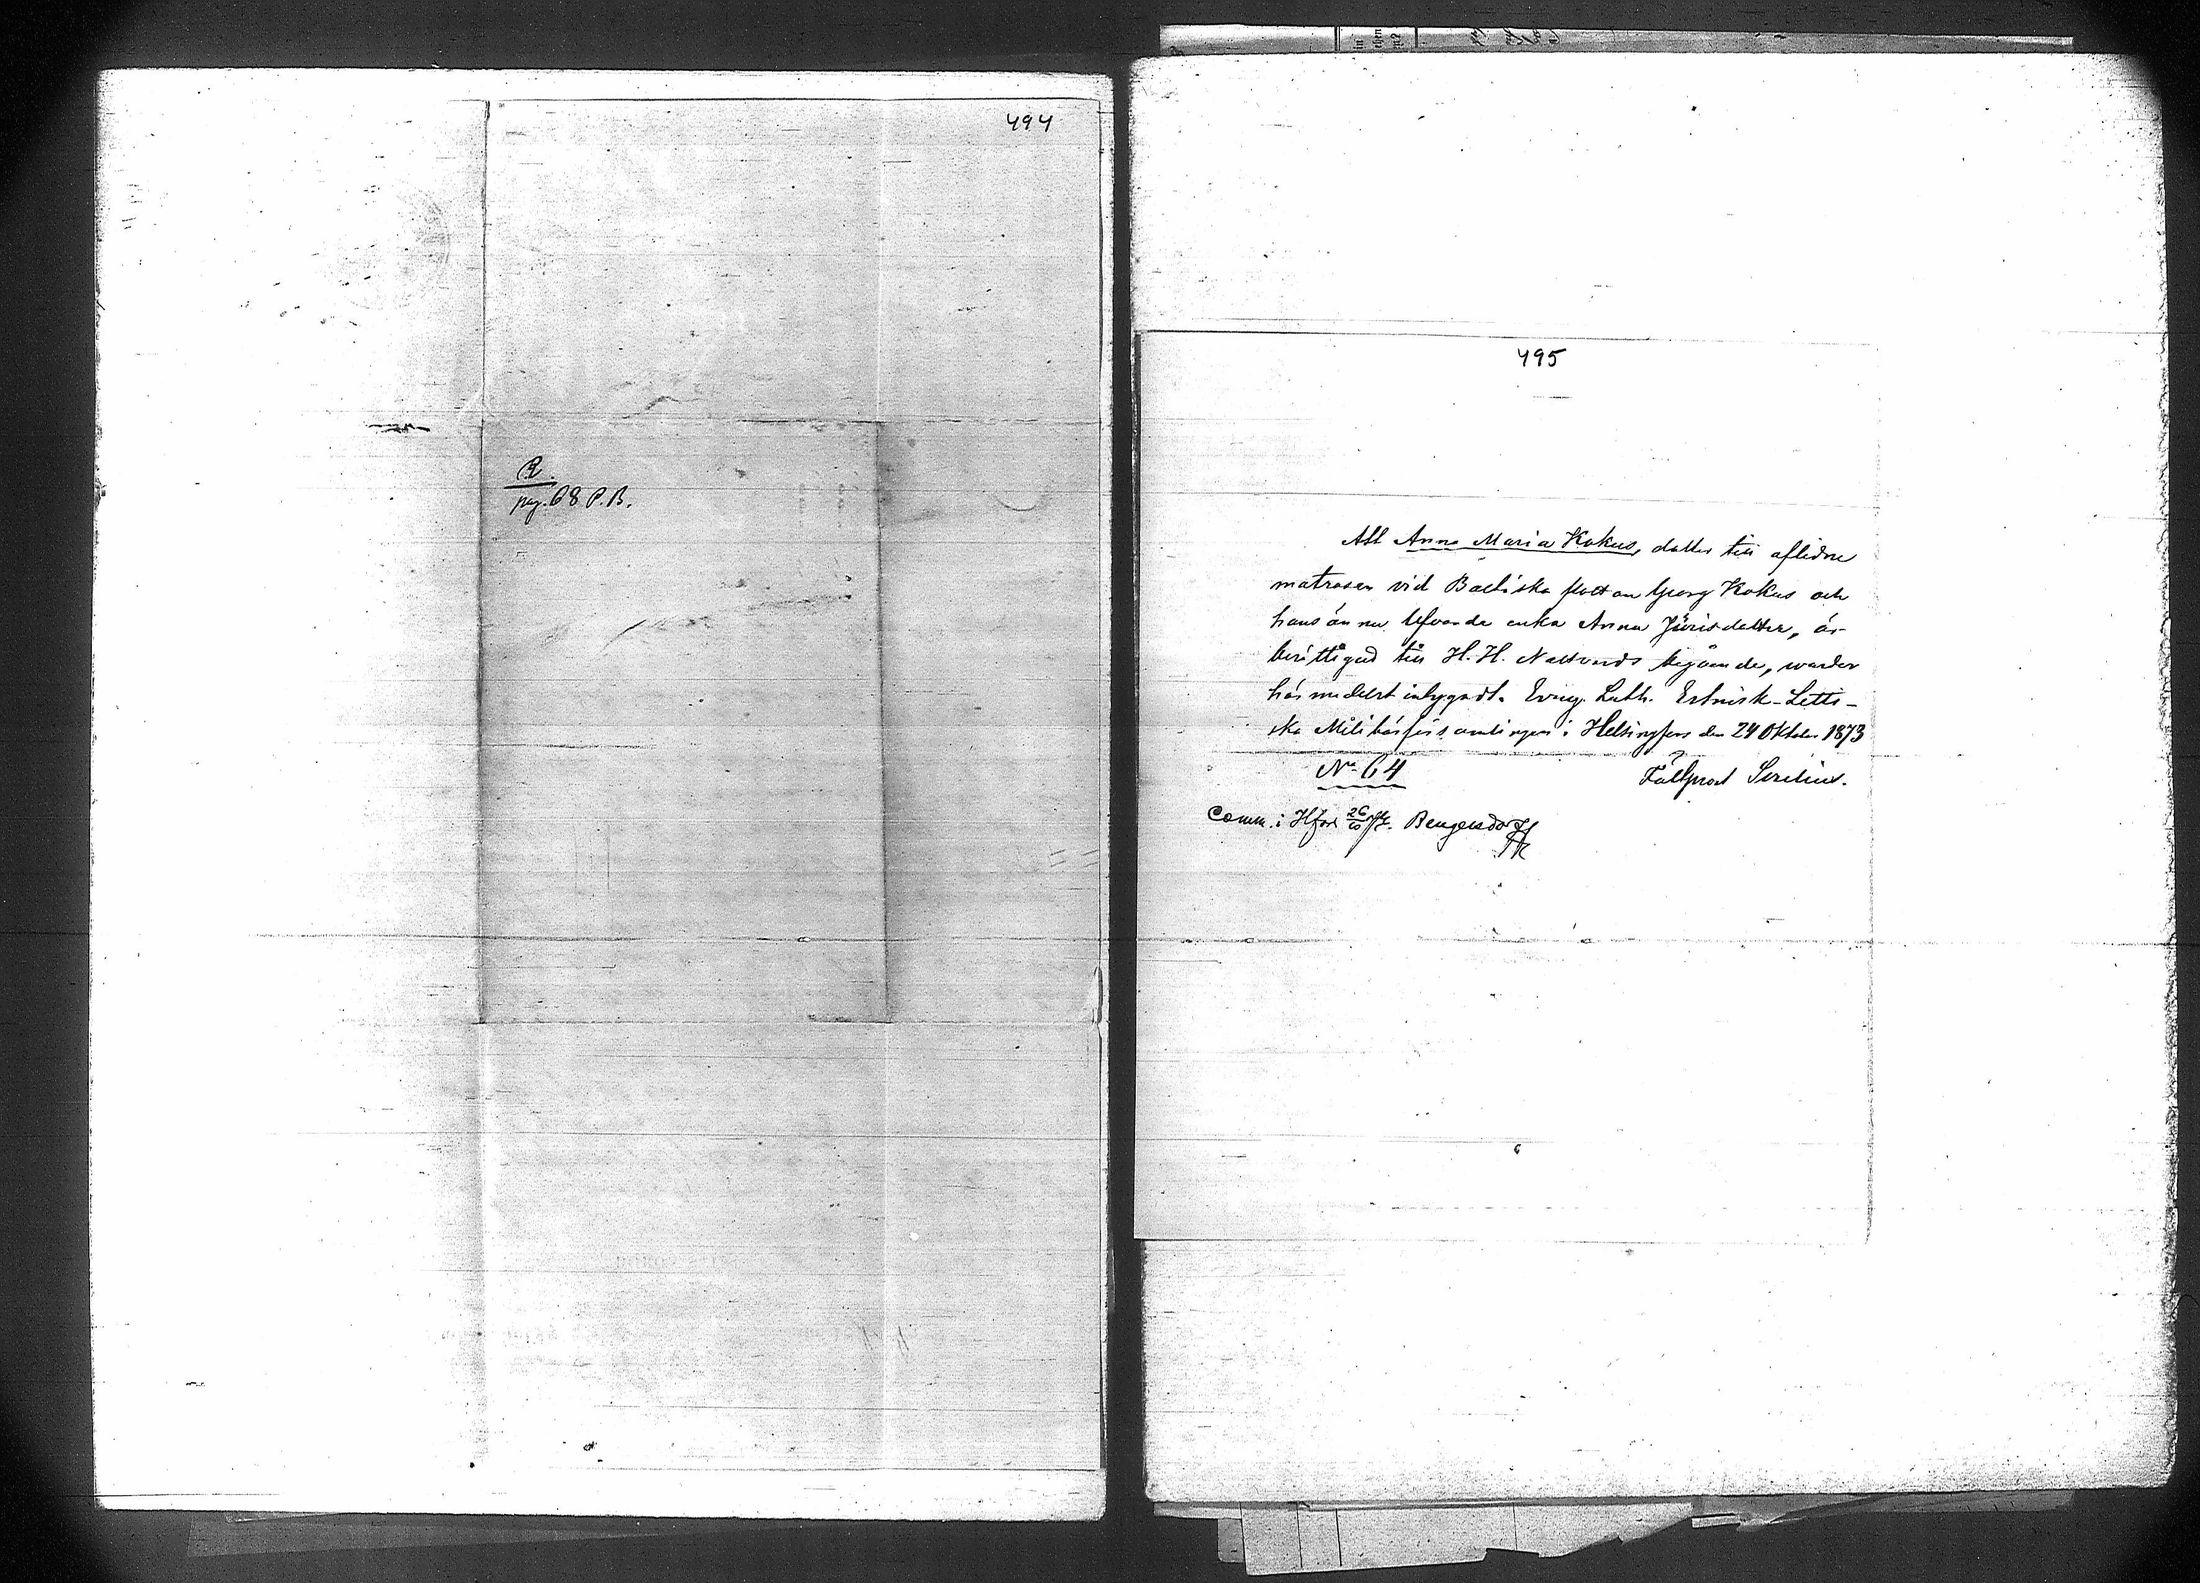 494
R.
pag. 68 P. B.
495
Att Anna Maria Kokus, dotter till aflidne
matrosen vid Baltiska flottan Georg Kokus och
hans ännu lefvande enka Anna Jürisdotter, är
berättigad till H. H. Nattvards begående, warder
här medelst intygadt. Evang. Luth. Estnisk-Letti-
ska Militärförsamlingen i Helsingfors den 24 Oktober 1873
No 64
Fältprost Sirelius.
Comm. i Hfors 26/10 Bengelsdorff